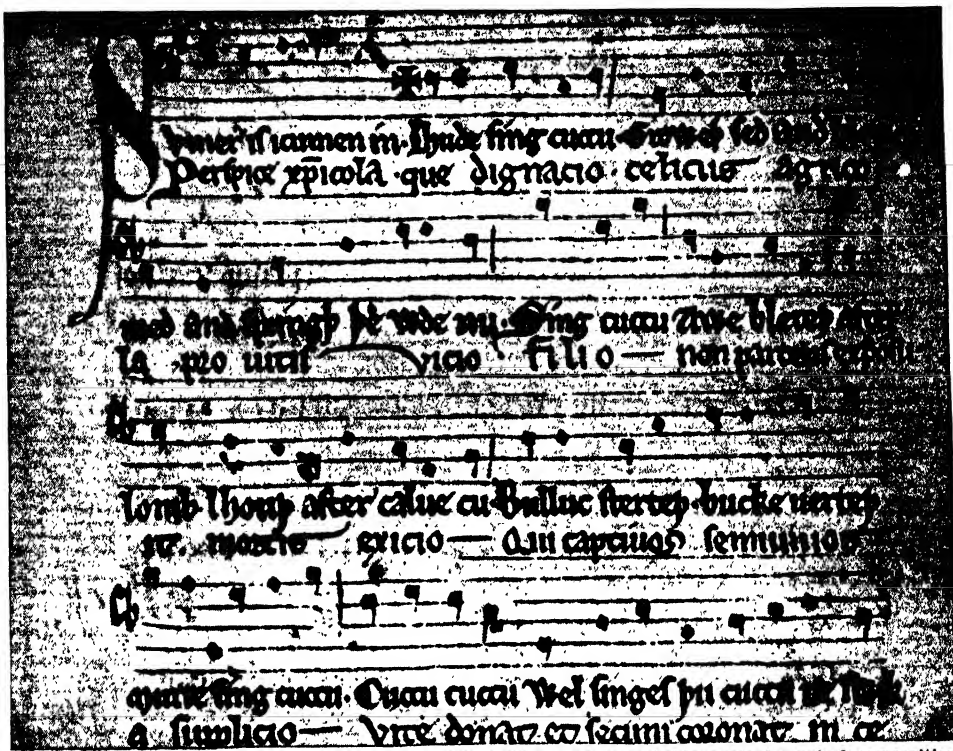 Sumer is icumen in. Lhude sing cuccu. Groweþ sed and
Perspice xp̄icola que dignacio celicus agrico
med and springþ þe wde nu. Sing cuccu Awe bleteþ after
la pro uitis vicio filio non parcens exposu
lomb lhouþ after calue cu. Bulluc sterteþ. bucke uerteþ
it. mortis exicio Qui captiuos semiuiuos
murie sing cuccu. Cuccu cuccu Wel singes þu cuccu ne swik
a supplicio Vite donat et secum coronat in ce